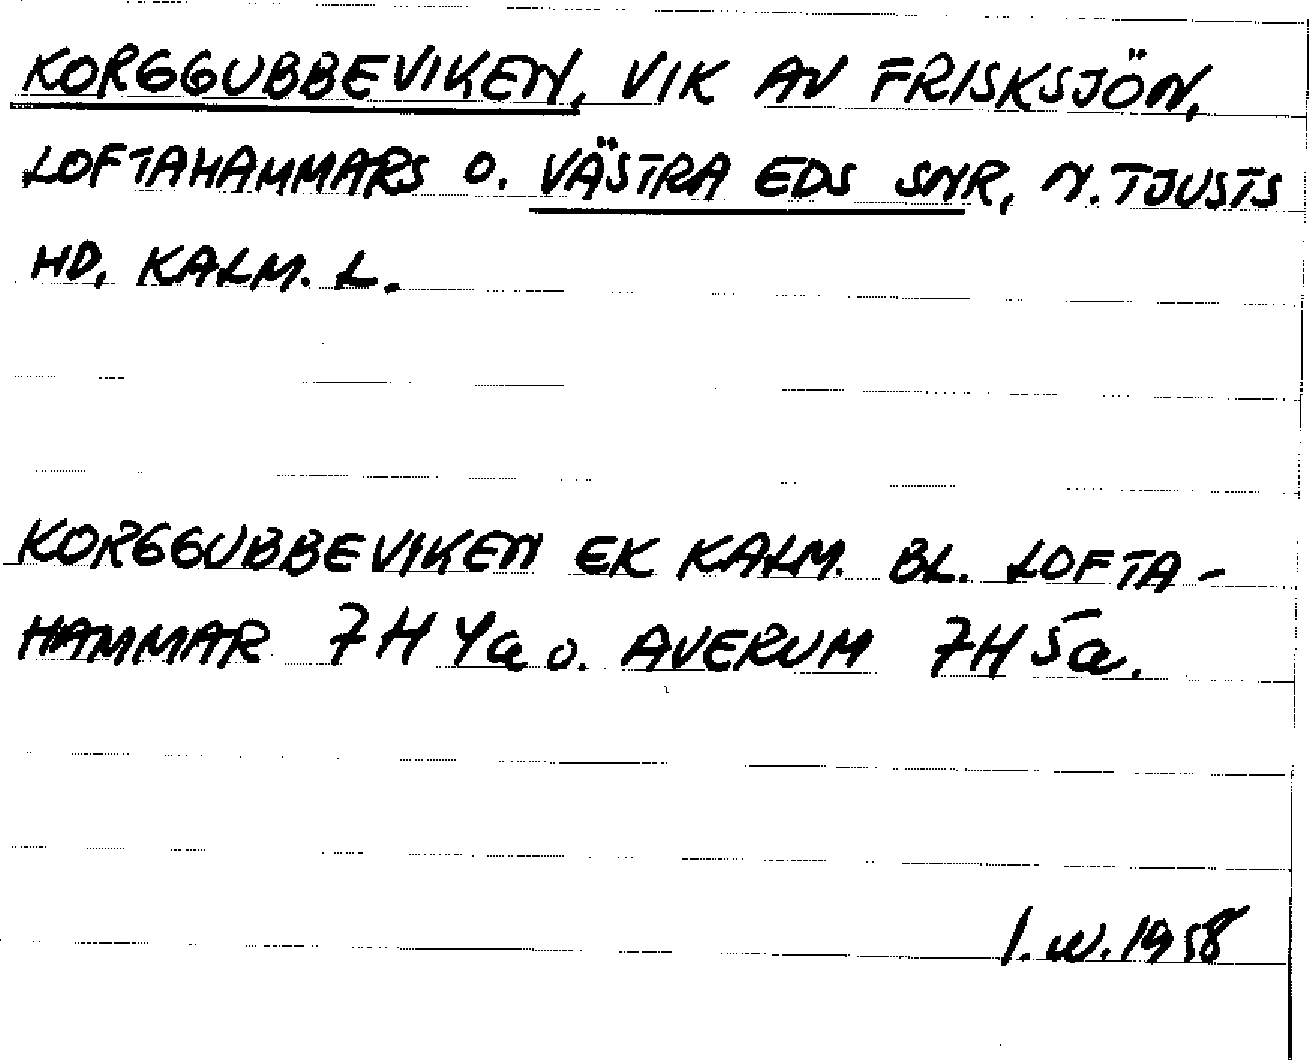 KORGGUBBEVIKEN, VIK AV FRISKSJÖN,
LOFTAHAMMARS O. VÄSTRA EDS SNR, N. TJUSTS
HD, KALM. L.
KORGGUBBEVIKEN EK KALM. BL. LOFTA-
HAMMAR 7H 4a o. AVERUM 7H 5a.
I.W. 1958